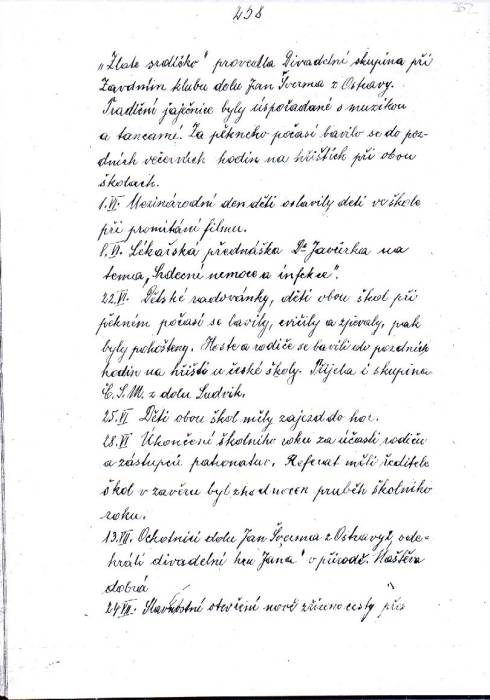 258
252
„Zlate srdličko" provedla Divadelní skupina při
Zavodním klubu dolu Jan Šverma z Ostravy.
Tradiční jaječnice byly uspořadané s muzikou
a tancami. Za pěkneho počasí bavilo se do poz-
dních večerních hodin na hřištích při obou
školach.
1.VI. Mezinárodní den dětí oslavily deti ve škole
při promítání filmu.
8.VI. Lékařská přednáška Dr Javůrka na
tema „Srdecní nemoce a infekce".
22.VI. Dětské radovánky, děti obou škol při
pěkném počasí se bavily, cvičily a zpívaly, pak
byly pohoštěny. Hoste a rodiče se bavili do pozdních
hodin na hřišti u české školy. Přijela i skupina
Č.S.M. z dolu Ludvík.
25.VI Děti obou škol měly zajezd do hor.
28.VI Ukončení školního roku za účasti rodičů
a zástupců patronatu. Referat měli ředitele
škol v zavěru byl zhodnocen pruběh školního
roku.
13.VII. Ochotnici dolu Jan Šverma z Ostravy, ode-
hráli divadelní hru „Jana" v přírodě. Naštěva
dobrá
24.VII. Slavnostní otevření nově zřízeno cesty přes